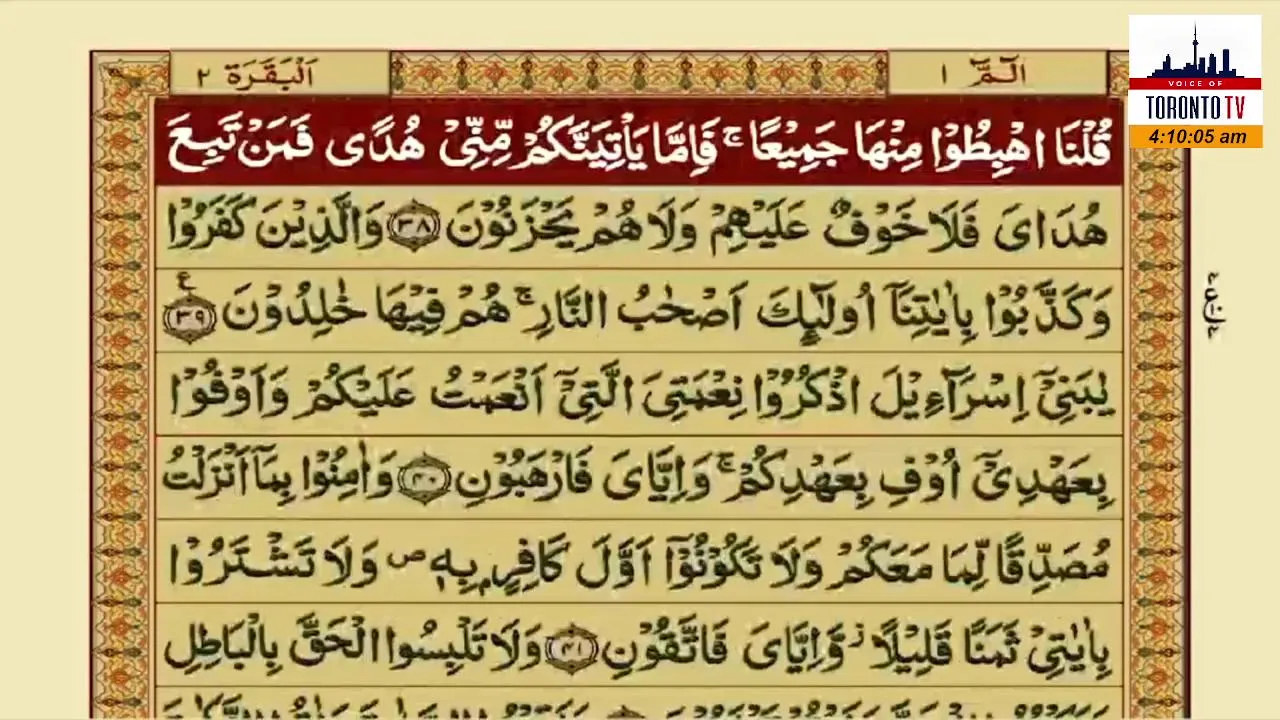 اَلْبَقَرَة ٢
الٓمّٓ ١
VOICE OF
TORONTO TV
4:10:05 am
قُلْنَا اهْبِطُوْا مِنْهَا جَمِيْعًا ۚ فَاِمَّا يَاْتِيَنَّكُمْ مِّنِّیْ هُدًی فَمَنْ تَبِعَ
هُدَایَ فَلَا خَوْفٌ عَلَيْهِمْ وَلَا هُمْ يَحْزَنُوْنَ ﴿٣٨﴾ وَالَّذِيْنَ كَفَرُوْا
وَكَذَّبُوْا بِاٰيٰتِنَآ اُولٰٓئِكَ اَصْحٰبُ النَّارِ ۚ هُمْ فِيْهَا خٰلِدُوْنَ ﴿٣٩﴾ ع
يٰبَنِیْٓ اِسْرَآءِيْلَ اذْكُرُوْا نِعْمَتِیَ الَّتِیْٓ اَنْعَمْتُ عَلَيْكُمْ وَاَوْفُوْا
بِعَهْدِیْٓ اُوْفِ بِعَهْدِكُمْ ۚ وَاِيَّایَ فَارْهَبُوْنِ ﴿٤٠﴾ وَاٰمِنُوْا بِمَآ اَنْزَلْتُ
مُصَدِّقًا لِّمَا مَعَكُمْ وَلَا تَكُوْنُوْٓا اَوَّلَ كَافِرٍۭ بِهٖ ۪ وَلَا تَشْتَرُوْا
بِاٰيٰتِیْ ثَمَنًا قَلِيْلًا ؗ وَّاِيَّایَ فَاتَّقُوْنِ ﴿٤١﴾ وَلَا تَلْبِسُوا الْحَقَّ بِالْبَاطِلِ